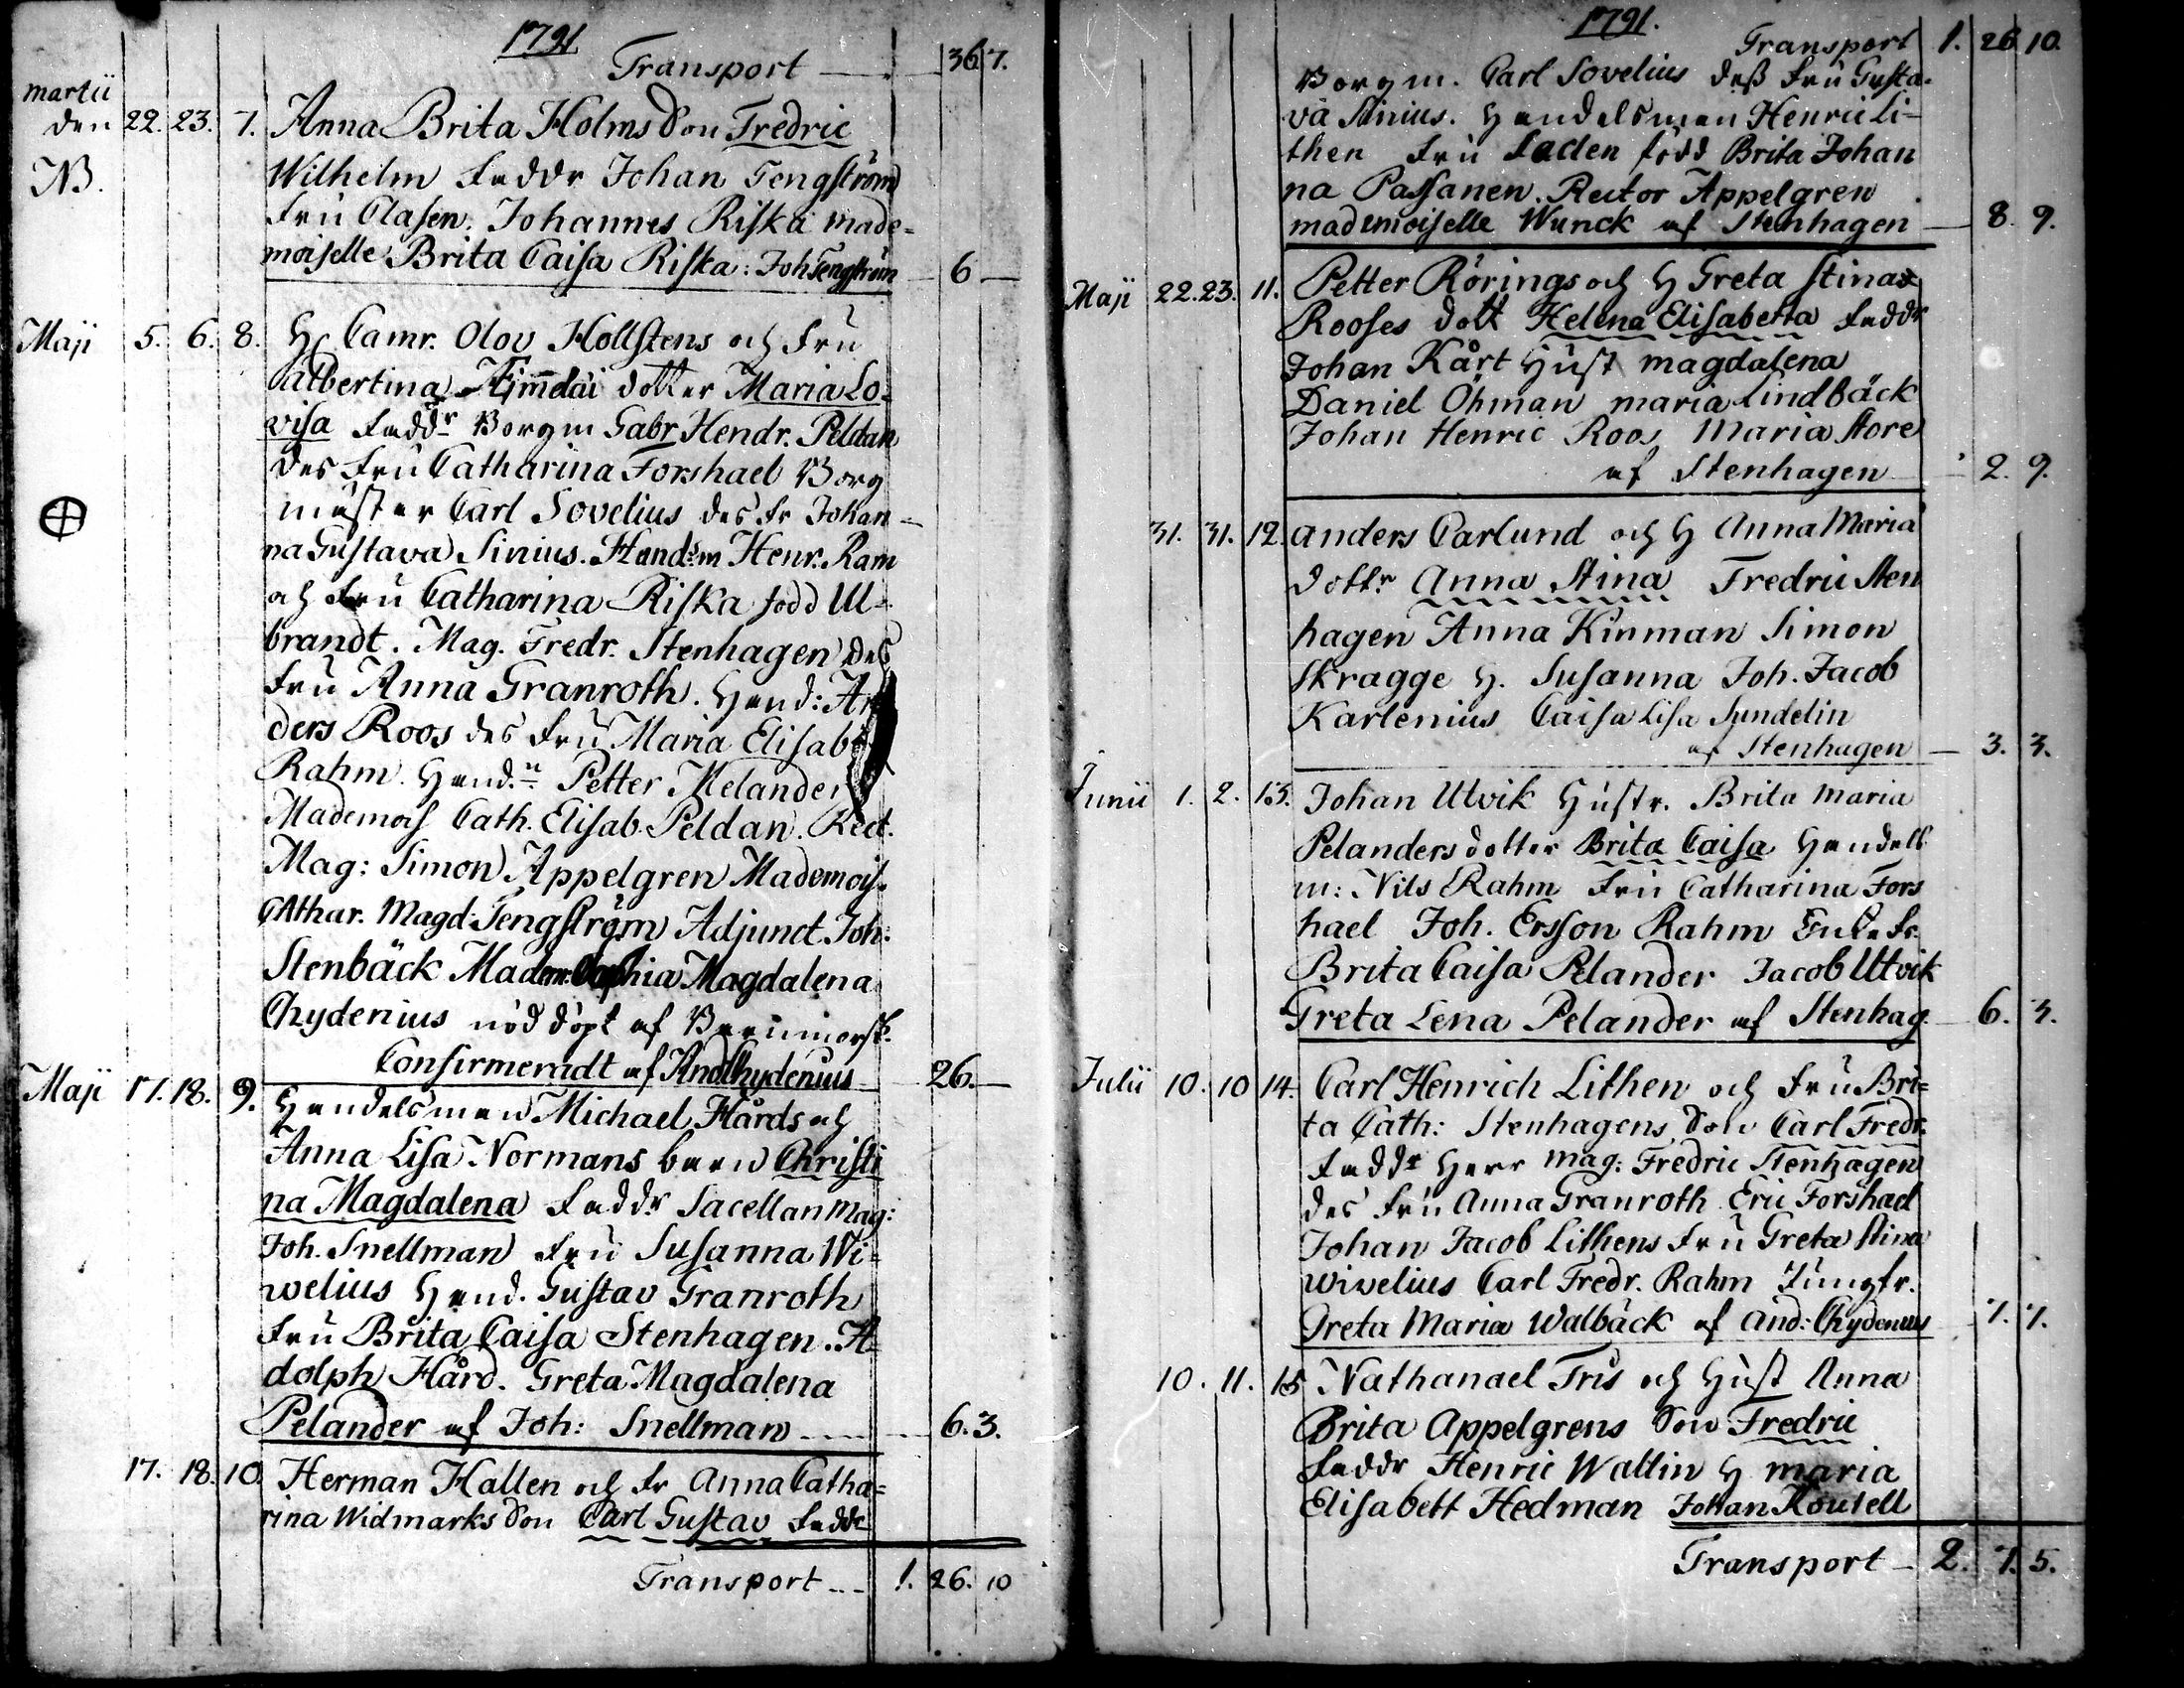 1791
Transport — 36. 7.
Martii
den 22. 23. 7. Anna Brita Holms Son Fredric
NB. Wilhelm Faddr Johan Tengström
Fru Clasen. Johannes Riska made=
moiselle Brita Caisa Riska: Joh Tengström — 6 —
Maji 5. 6. 8. H Camr. Olov Hollstens och Fru
Albertina dotter Maria Lo-
visa Faddr Borgm Gabr. Hendr. Peldan
des Fru Catharina Forshael Borg
mäster Carl Sovelius des Fr Johan-
na Gustava Sinius. Handsm Henr. Ram
och Fru Catharina Riska född Ul-
brandt. Mag. Fredr. Stenhagen des
Fru Anna Granroth. Hand: An
ders Roos des Fru Maria Elisab
Rahm. Hand. Petter Melander
Mademois Cath. Elisab. Peldan. Rect.
Mag: Simon Appelgren Mademois.
Cathar. Magd: Tengström Adjunct. Joh.
Stenbäck Madem. Sophia Magdalena
Chydenius nöddöpt af Barnmorsk.
Confirmeradt af And Chydenius — 26. —
Maji 17. 18. 9. Handelsman Michael Hårds och
Anna Lisa Normans barn Christi
na Magdalena Faddr Sacellan Mag:
Joh. Snellman Fru Susanna Wi-
welius Hand. Gustav Granroth
Fru Brita Caisa Stenhagen. A-
dolph Hård. Greta Magdalena
Pelander af Joh: Snellman — 6. 3.
17. 18. 10. Herman Hallen och Fr Anna Catha=
rina Widmarks Son Carl Gustav Faddr
Transport -- 1. 26. 10
1791.
Transport 1. 26 10.
Borgm. Carl Sovelius dess Fru Gusta-
va Sinius. Handelsman Henric Li-
then Fru född Brita Johan
na Passanen. Rector Appelgren
mademoiselle Wunck af Stenhagen — 8. 9.
Maji 22. 23. 11. Petter Rörings och H Greta Stina
Rooses dott Helena Elisabetta Faddr
Johan Kårt Hust Magdalena
Daniel Öhman Maria Lindbäck
Johan Henric Roos Maria Store
af Stenhagen — 2. 9.
31. 31. 12. Anders Carlund och H Anna Maria
dottr Anna Stina Fredric Sten
hagen Anna Kinman Simon
Skragge H. Susanna Joh. Jacob
Karlenius Caisa Lisa Sundelin
af Stenhagen — 3. 3.
Junii 1. 2. 13. Johan Utvik Hustr. Brita Maria
Pelanders dotter Brita Caisa Handels
m: Nils Rahm Fru Catharina Fors
hael Joh. Ersson Rahm Enke Fr.
Brita Caisa Pelander Jacob Utvik
Greta Lena Pelander af Stenhag. — 6. 3.
Julii 10. 10 14. Carl Henrich Lithen och Fru Bri=
ta Cath: Stenhagens Son Carl Fredr.
Faddr Herr Mag: Fredric Stenhagen
des Fru Anna Granroth Eric Forshael
Johan Jacob Lithens Fru Greta Stina
Wivelius Carl Fredr. Rahm Jungfr.
Greta Maria Walbäck af And: Chydenius — 7. 7.
10. 11. 15 Nathanael Fris och Hust Anna
Brita Appelgrens Son Fredric
Faddr Henric Wallin H Maria
Elisabett Hedman Johan Koutell
Transport — 2. 7. 5.